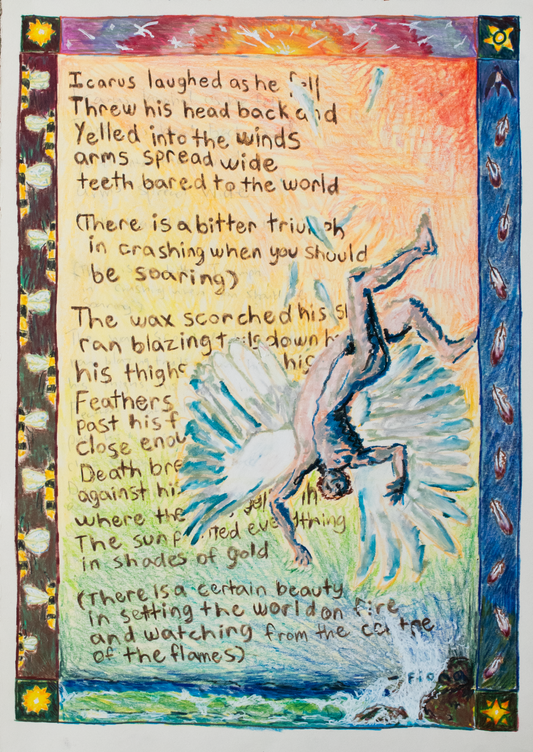 Icarus laughed as he fell
Threw his head back and
Yelled into the winds
arms spread wide
teeth bared to the world
(There is a bitter triumph
in crashing when you should
be soaring)
The wax scorched his
ran blazing trails down
his thighs his
Feathers
past his
Close
Death
against his
where the
The sun painted everything
in shades of gold
(There is a certain beauty
in setting the world on fire
and watching from the centre
of the flames)
- Fiona